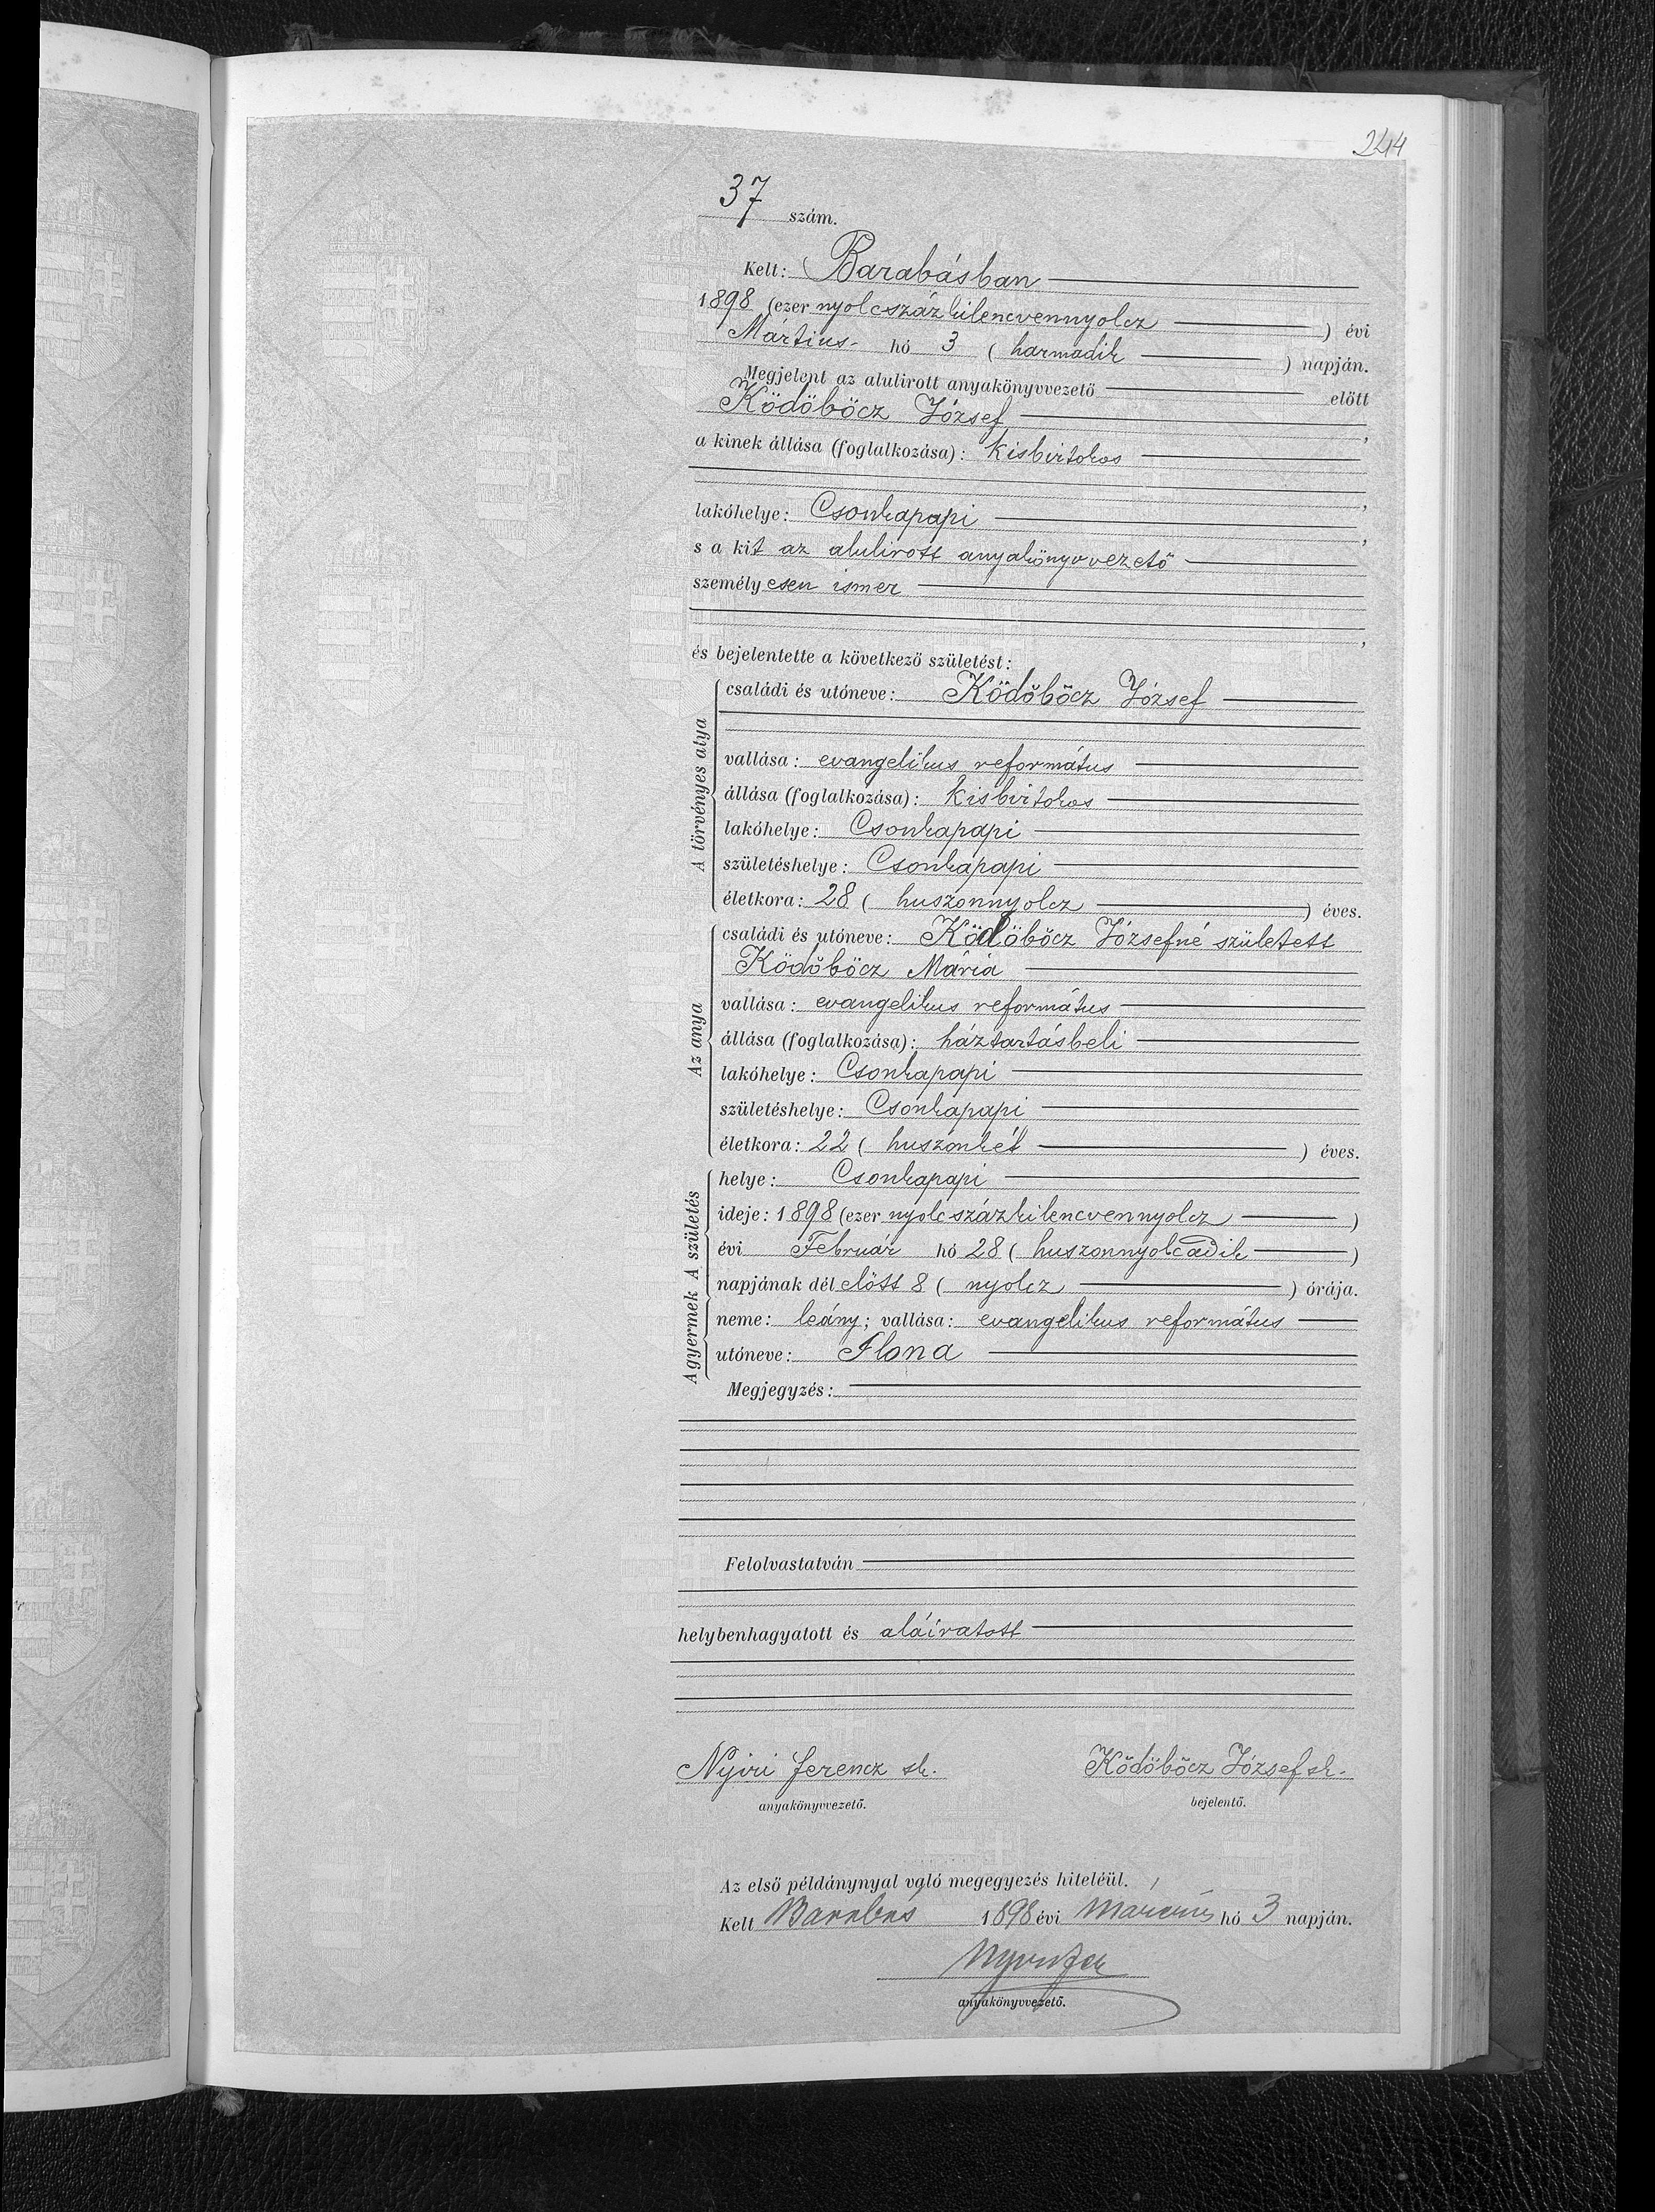 244
37 szám.
Kelt: Barabásban
1898 (ezer nyolcszázkilencvennyolcz) évi
Mártius hó 3 (harmadik) napján.
Megjelent az alulirott anyakönyvvezető előtt
Ködöböcz József,
a kinek állása (foglalkozása): kisbirtokos
,
lakóhelye: Csonkapapi,
s a kit az alulirott anyakönyvvezető
személyesen ismer
,
és bejelentette a következő születést:
A törvényes atya
családi és utóneve: Ködöböcz József
vallása: evangelikus református
állása (foglalkozása): kisbirtokos
lakóhelye: Csonkapapi
születéshelye: Csonkapapi
életkora: 28 (huszonnyolcz) éves.
Az anya
családi és utóneve: Ködöböcz Józsefné született
Ködöböcz Mária
vallása: evangelikus református
állása (foglalkozása): háztartásbeli
lakóhelye: Csonkapapi
születéshelye: Csonkapapi
életkora: 22 (huszonkét) éves.
A gyermek A születés
helye: Csonkapapi
ideje: 1898 (ezer nyolcszázkilencvennyolcz)
évi Február hó 28 (huszonnyolcadik)
napjának délelőtt 8 (nyolcz) órája.
neme: leány; vallása: evangelikus református
utóneve: Ilona
Megjegyzés:
Felolvastatván
helybenhagyatott és aláíratott
Nyiri Ferencz sk. Ködöböcz József sk.
anyakönyvvezető. bejelentő.
Az első példánynyal való megegyezés hiteléül.
Kelt Barabás 1898 évi Marcius hó 3 napján.
anyakönyvvezető.